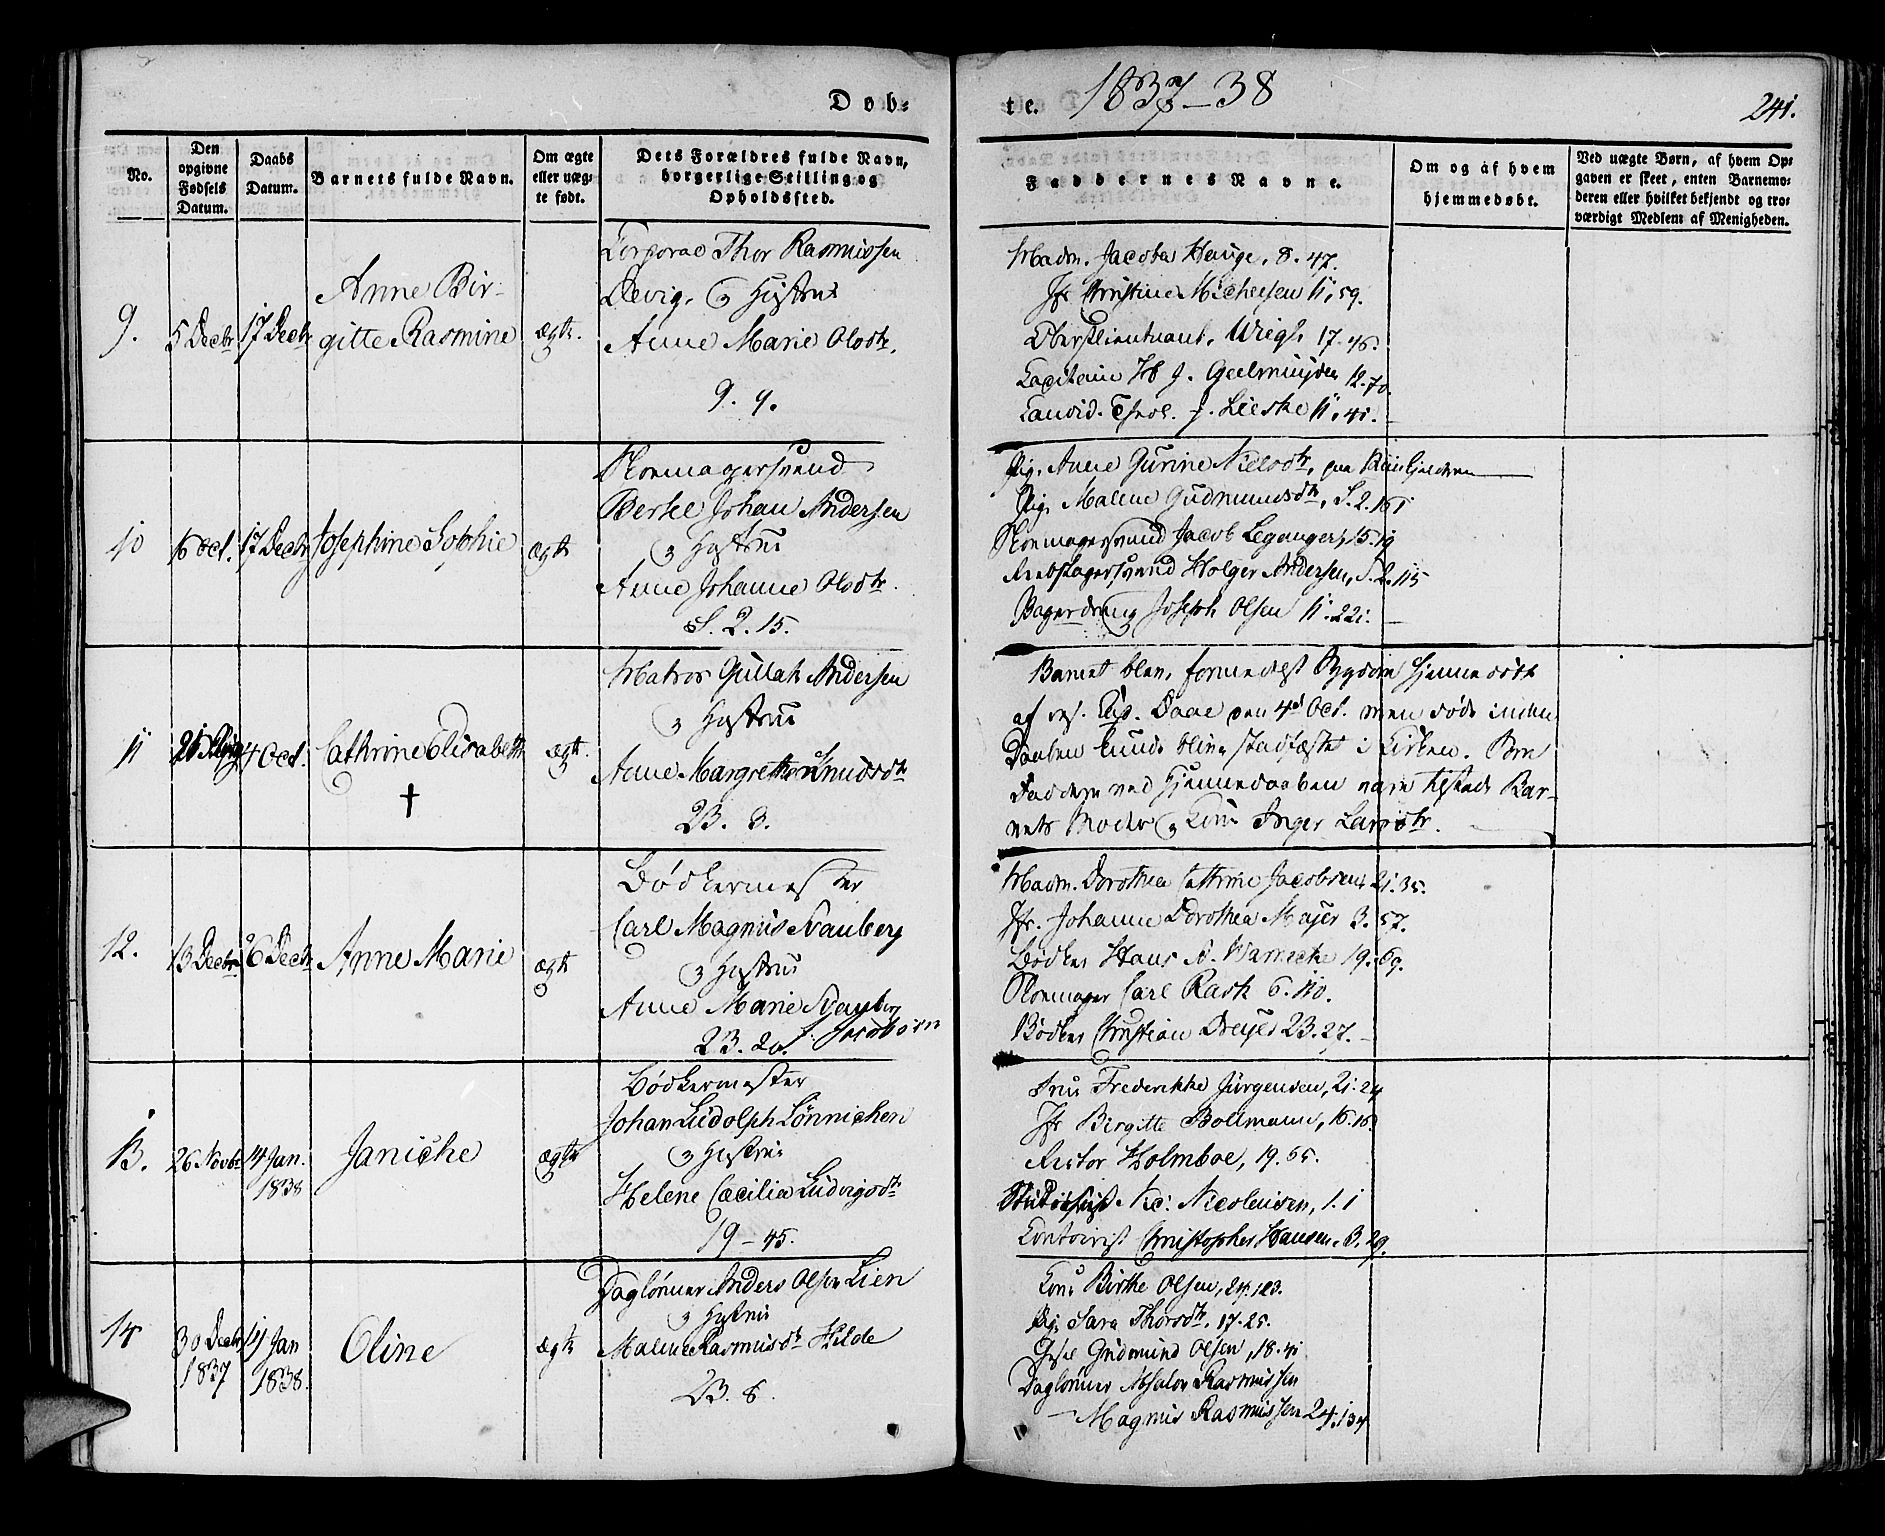 Døb=
te.
1837-38
241.
No.
Den
opgivne
Fødsels
Datum.
Daabs
Datum.
Barnets fulde Navn.
Om ægte
eller uæg-
te født.
Dets Forældres fulde Navn,
borgerlige Stilling og
Opholdssted.
Faddernes Navne.
Om og af hvem
hjemmedøbt.
Ved uægte Børn, af hvem Op-
gaven er skeet, enten Barnemo-
deren eller hvilket bekjendt og tro-
værdigt Medlem af Menigheden.
9.
5 Decbr
17 Decbr
Anne Bir-
gitte Rasmine
ægte.
Corporal Thor Rasmussen
Devig, og Hustrue
Anne Marie Olsdtr.
9. 9.
Madm. Jacoba Hauge, 8. 47.
Jfr Christine Michelsen 11, 59.
Oberstlieutnant, Wiegh 17. 46.
Capitaine H J. Geelmuyden 12. 70
Candid. Theol. J. Lieske 11. 41.
10
16 Oct.
17 Decbr
Josephine Sophie
ægte
Skomagersvend
Berke Johan Andersen
og Hustrue
Anne Johanne Olsdtr.
S. 2. 15.
Pig. Anne Gurine Nielsdtr,
Pig. Malene Gudmundsdtr, S. 2. 161
Skomagersvend Jacob Leganger, 15. 19
Rebslagersvend Holger Andersen, S. 2. 115
Bagerdreng Joseph Olsen 11. 221.
11
21 Aug
4 Oct.
Cathrine Elisabeth
†
ægte.
Matros Gullak Andersen
og Hustrue
Anne Margrethe Knudsdtr
23. 3.
Barnet blev, formedelst Sygdom hjemmedøbt
af res. Cap. Daae den 4de Oct. men døde inden
Daaben kunde blive stadfæstet i Kirken. Som
Faddere ved Hjemmedaaben vare tilstede Bar-
nets Moder og Kone Inger Larsdtr.
12.
13 Decbr
26 Decbr
Anne Marie
ægte
Bødkermester
Carl Magnus Svanberg
og Hustrue
Anne Marie Svanberg
f. Jacobsen
23. 20.
Madm. Dorothea Cathrine Jacobsen 21. 35.
Jfr. Johanne Dorothea Majer 3. 57.
Bødker Hans A. Warncke 19. 69.
Skomager Carl Rask 6. 110.
Bødker Christian Dreyer 23. 27.
13.
26 Novbr
14 Jan.
1838
Janiche
ægte
Bødkermester
Johan Ludolph Lönnichen
og Hustrue
Helene Cæcilia Ludvigsdtr
19 - 45.
Frue Frederikke Jürgensen, 21. 24
Jfr Birgitte Bollmann, 16. 16.
Rector Holmboe, 19. 65.
Nic: Nicolausen, 1. 1
Contoirist Christopher Hansen, 3. 29.
14
30 Decbr
1837
14 Jan
1838.
Oline
ægte
Daglønner Anders Olsen Lien
og Hustrue
Malene Rasmusdtr Hilde
23. 8.
Kone Birthe Olsen, 24. 123.
Pig. Sara Thorsdtr, 17. 25.
Gudmund Olsen, 18. 41
Daglønner Absalon Rasmussen
— Magnus Rasmussen 24. 134